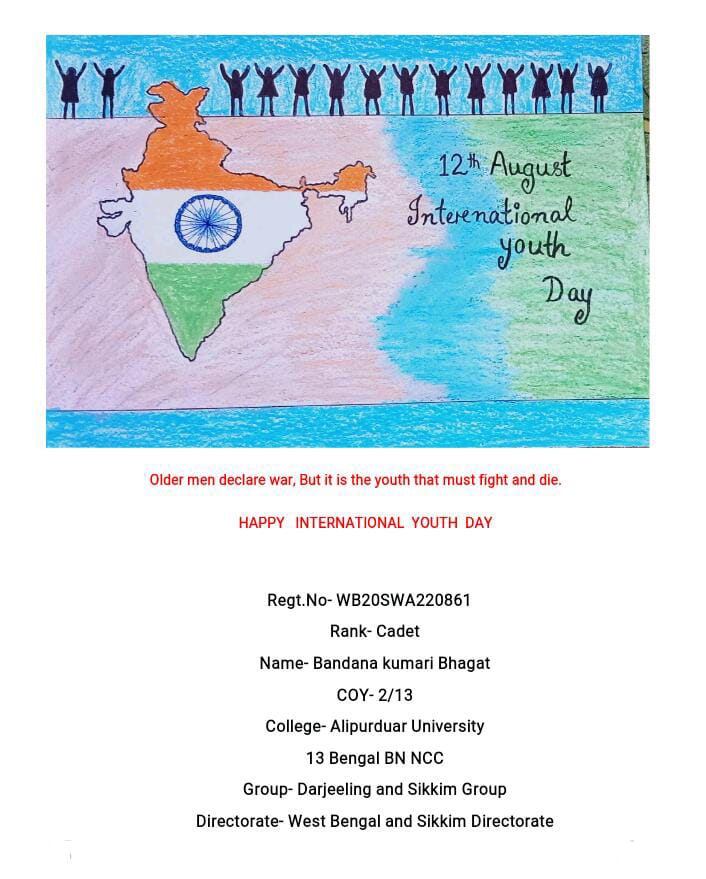 12th August
Interenational
youth
Day
Older men declare war, But it is the youth that must fight and die.
HAPPY INTERNATIONAL YOUTH DAY
Regt.No- WB20SWA220861
Rank- Cadet
Name- Bandana kumari Bhagat
COY- 2/13
College- Alipurduar University
13 Bengal BN NCC
Group- Darjeeling and Sikkim Group
Directorate- West Bengal and Sikkim Directorate